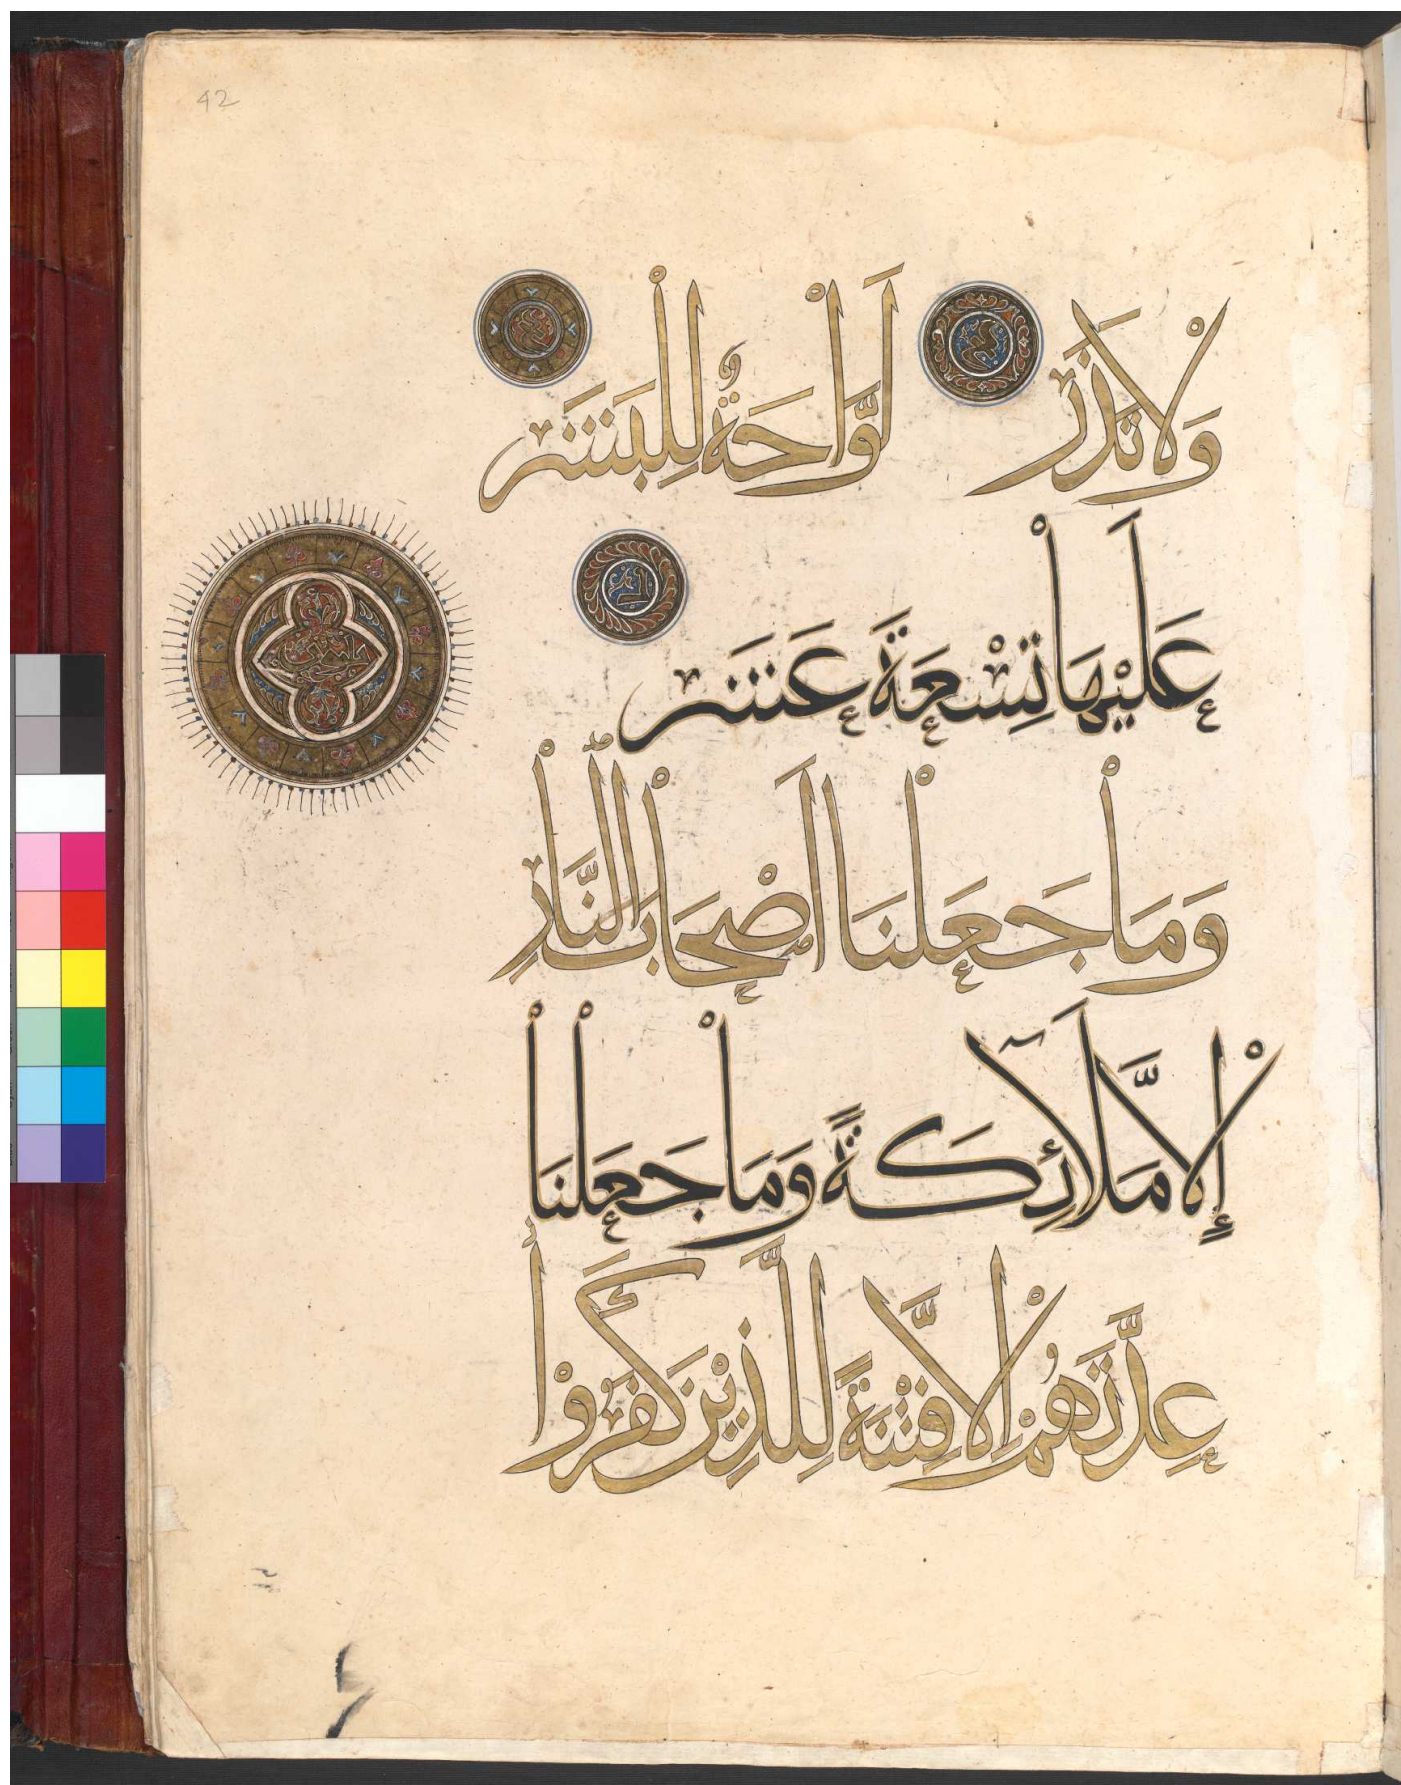 42
وَلَا تَذَرْ لَوَّاحَةٌ لِلْبَشَرِ
عَلَيْهَا تِسْعَةَ عَشَرَ
وَمَا جَعَلْنَا أَصْحَابَ النَّارِ
إِلَّا مَّلَآئِكَةً وَمَا جَعَلْنَا
عِدَّتَهُمْ إِلَّا فِتْنَةً لِلَّذِيْنَ كَفَرُوْا